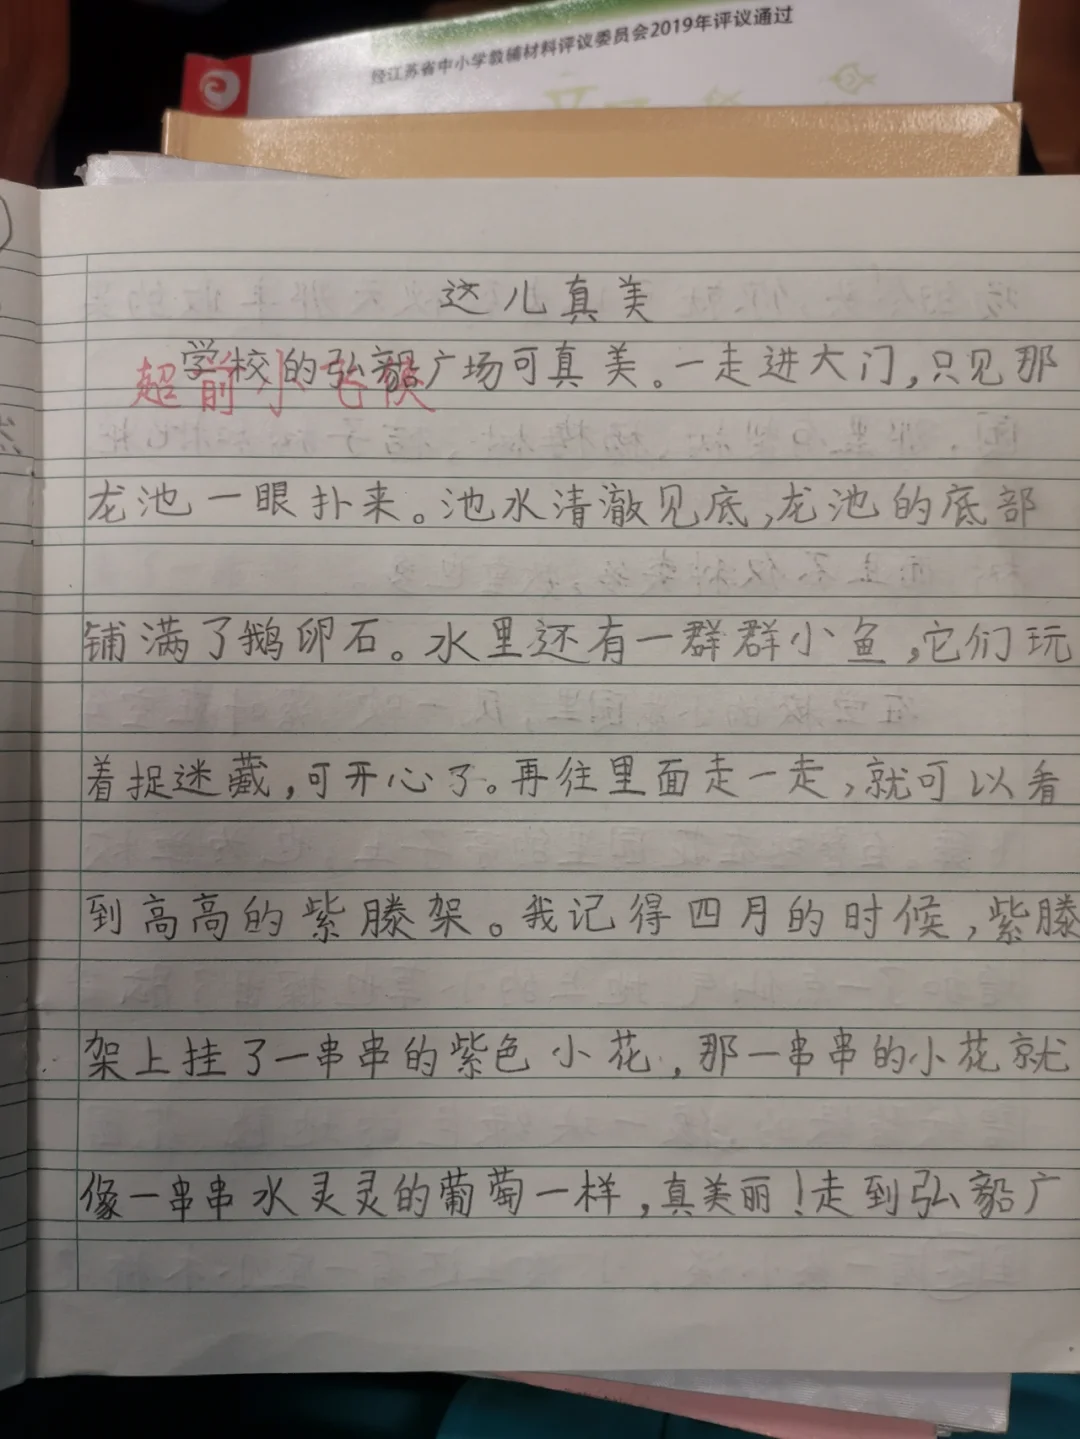 经江苏省中小学教辅材料评议委员会2019年评议通过
这儿真美
学校的弘毅广场可真美。一走进大门,只见那
超前小飞侠
龙池一眼扑来。池水清澈见底,龙池的底部
铺满了鹅卵石。水里还有一群群小鱼,它们玩
着捉迷藏,可开心了。再往里面走一走,就可以看
到高高的紫滕架。我记得四月的时候,紫滕
架上挂了一串串的紫色小花,那一串串的小花就
像一串串水灵灵的葡萄一样,真美丽!走到弘毅广